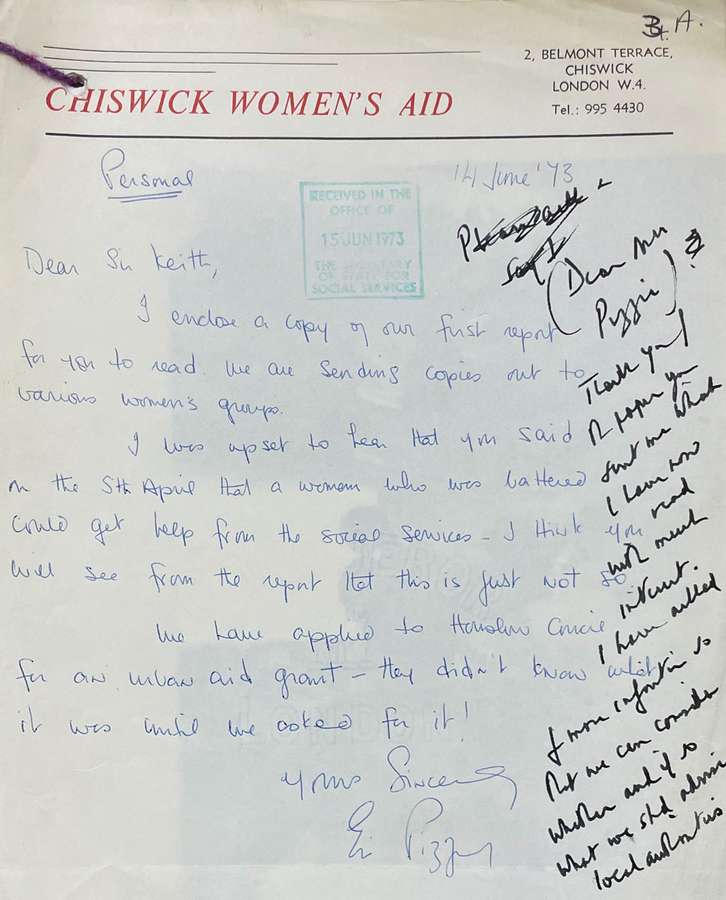 3. A.
2, BELMONT TERRACE,
CHISWICK
LONDON W.4.
Tel.: 995 4430
CHISWICK WOMEN'S AID
Personal
14 June '73
RECEIVED IN THE
OFFICE OF
15 JUN 1973
THE SECRETARY
OF STATE FOR
SOCIAL SERVICES
Dear Sir Keith,
I enclose a copy of our first report
for you to read. We are sending copies out to
various women's groups.
I was upset to hear that you said
on the 5th April that a woman who was battered
could get help from the social services - I think you
will see from the report that this is just not so.
We have applied to Hounslow Council
for an urban aid grant - they didn't know what
it was until we asked for it!
Yours Sincerely
Pizzey
(Dear Mrs
Pizzie)?
Thank you for
the paper you
sent me which
I have now
read
with much
interest.
I have asked
for more information so
that we can consider
whether and if so
what we shd advise
local authorities